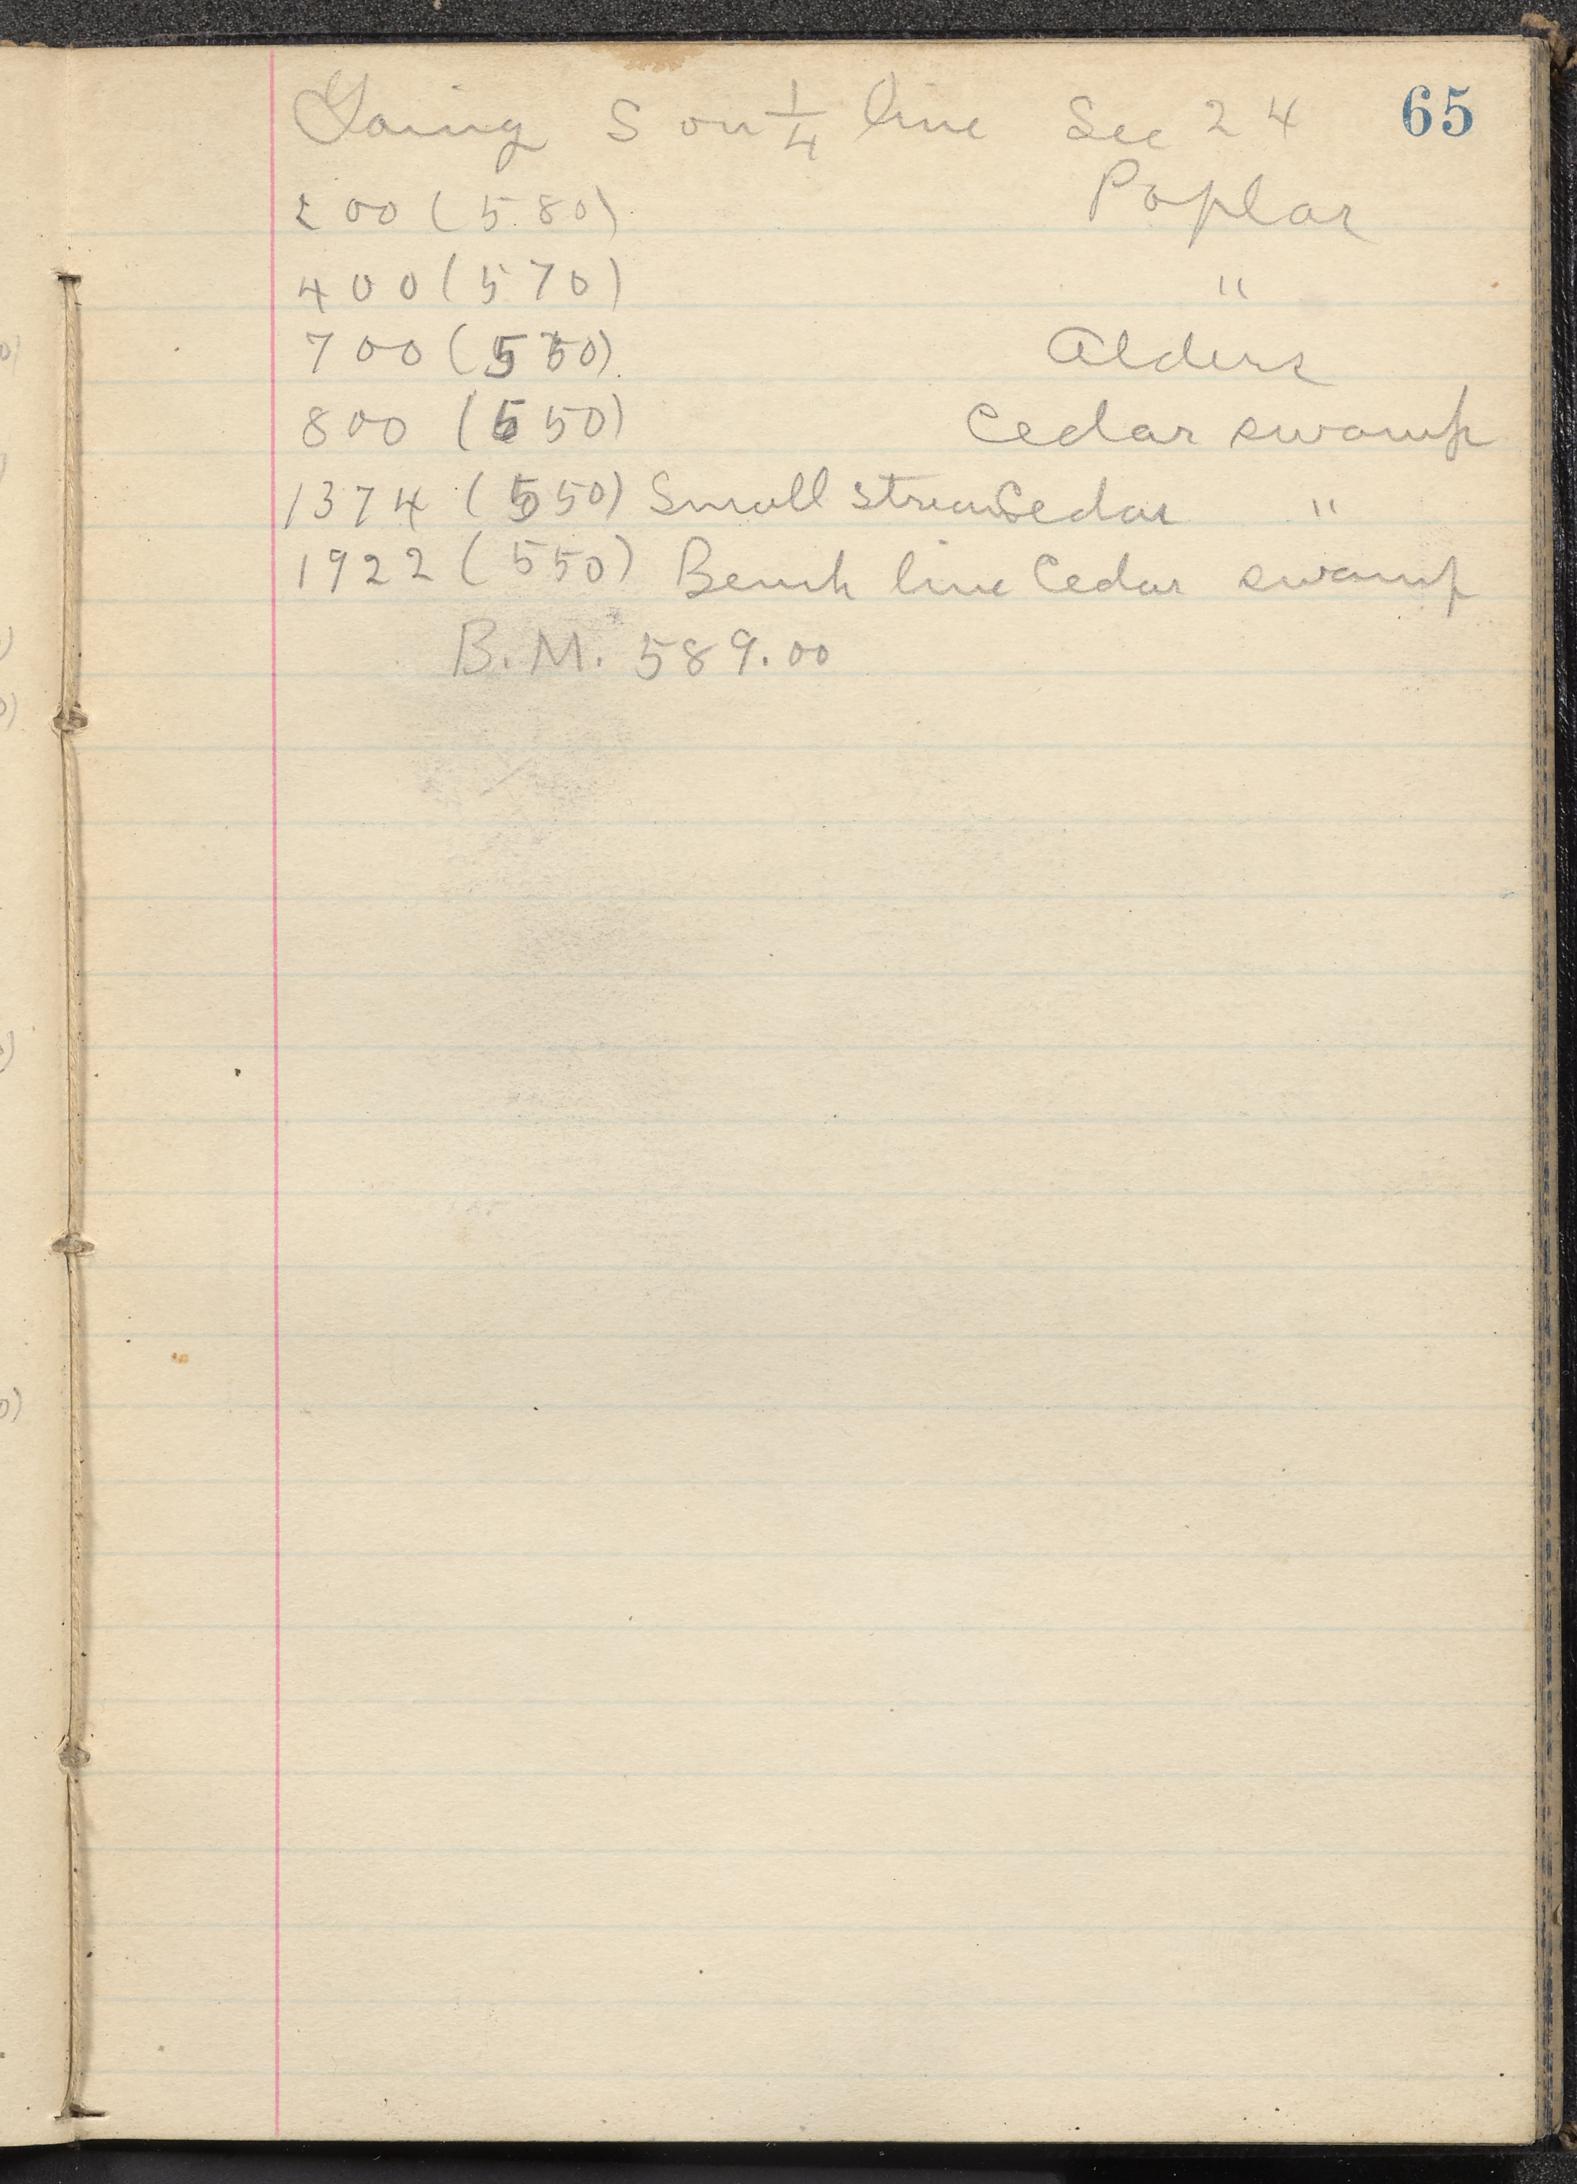 Going S on 1/4 line Sec 24 65
200 (580) Poplar
400 (570) "
700 (550) Alders
800 (550) Cedar swamp
1374 (550) Small stream Cedar "
1922 (550) Bench line Cedar swamp
B.M. 589.00